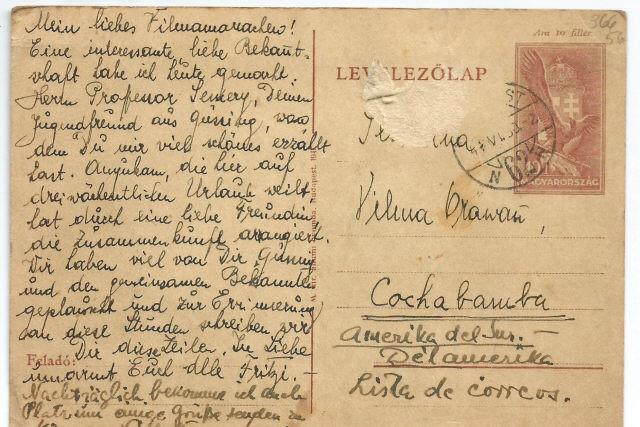 Mein liebes
Eine interessante liebe Bekannt-
schaft habe ich heute gemacht.
Herrn Professor Deinen
Jugendfreund aus Güssing, von
dem Du mir viel schönes erzählt
hast. die hier auf
dreiwöchentlichen Urlaub weilt
hat durch eine liebe Freundin
die Zusammenkunft arrangiert.
Wir haben viel von Dir
und den gemeinsamen Bekannten
geplauscht und zur Erinnerung
an diese Stunden schreiben wir
Dir diese Zeilen. In Liebe
umarmt Euch alle Fritzi.-
Nachträglich bekomme ich auch
Platz um einige Grüße senden zu
Feladó:
366
56
Ára 10 fillér
LEVELEZŐLAP
MAGYARORSZÁG
Vilma
Cochabamba
Amerika del Sur.-
Délamerika
Lista de correos.